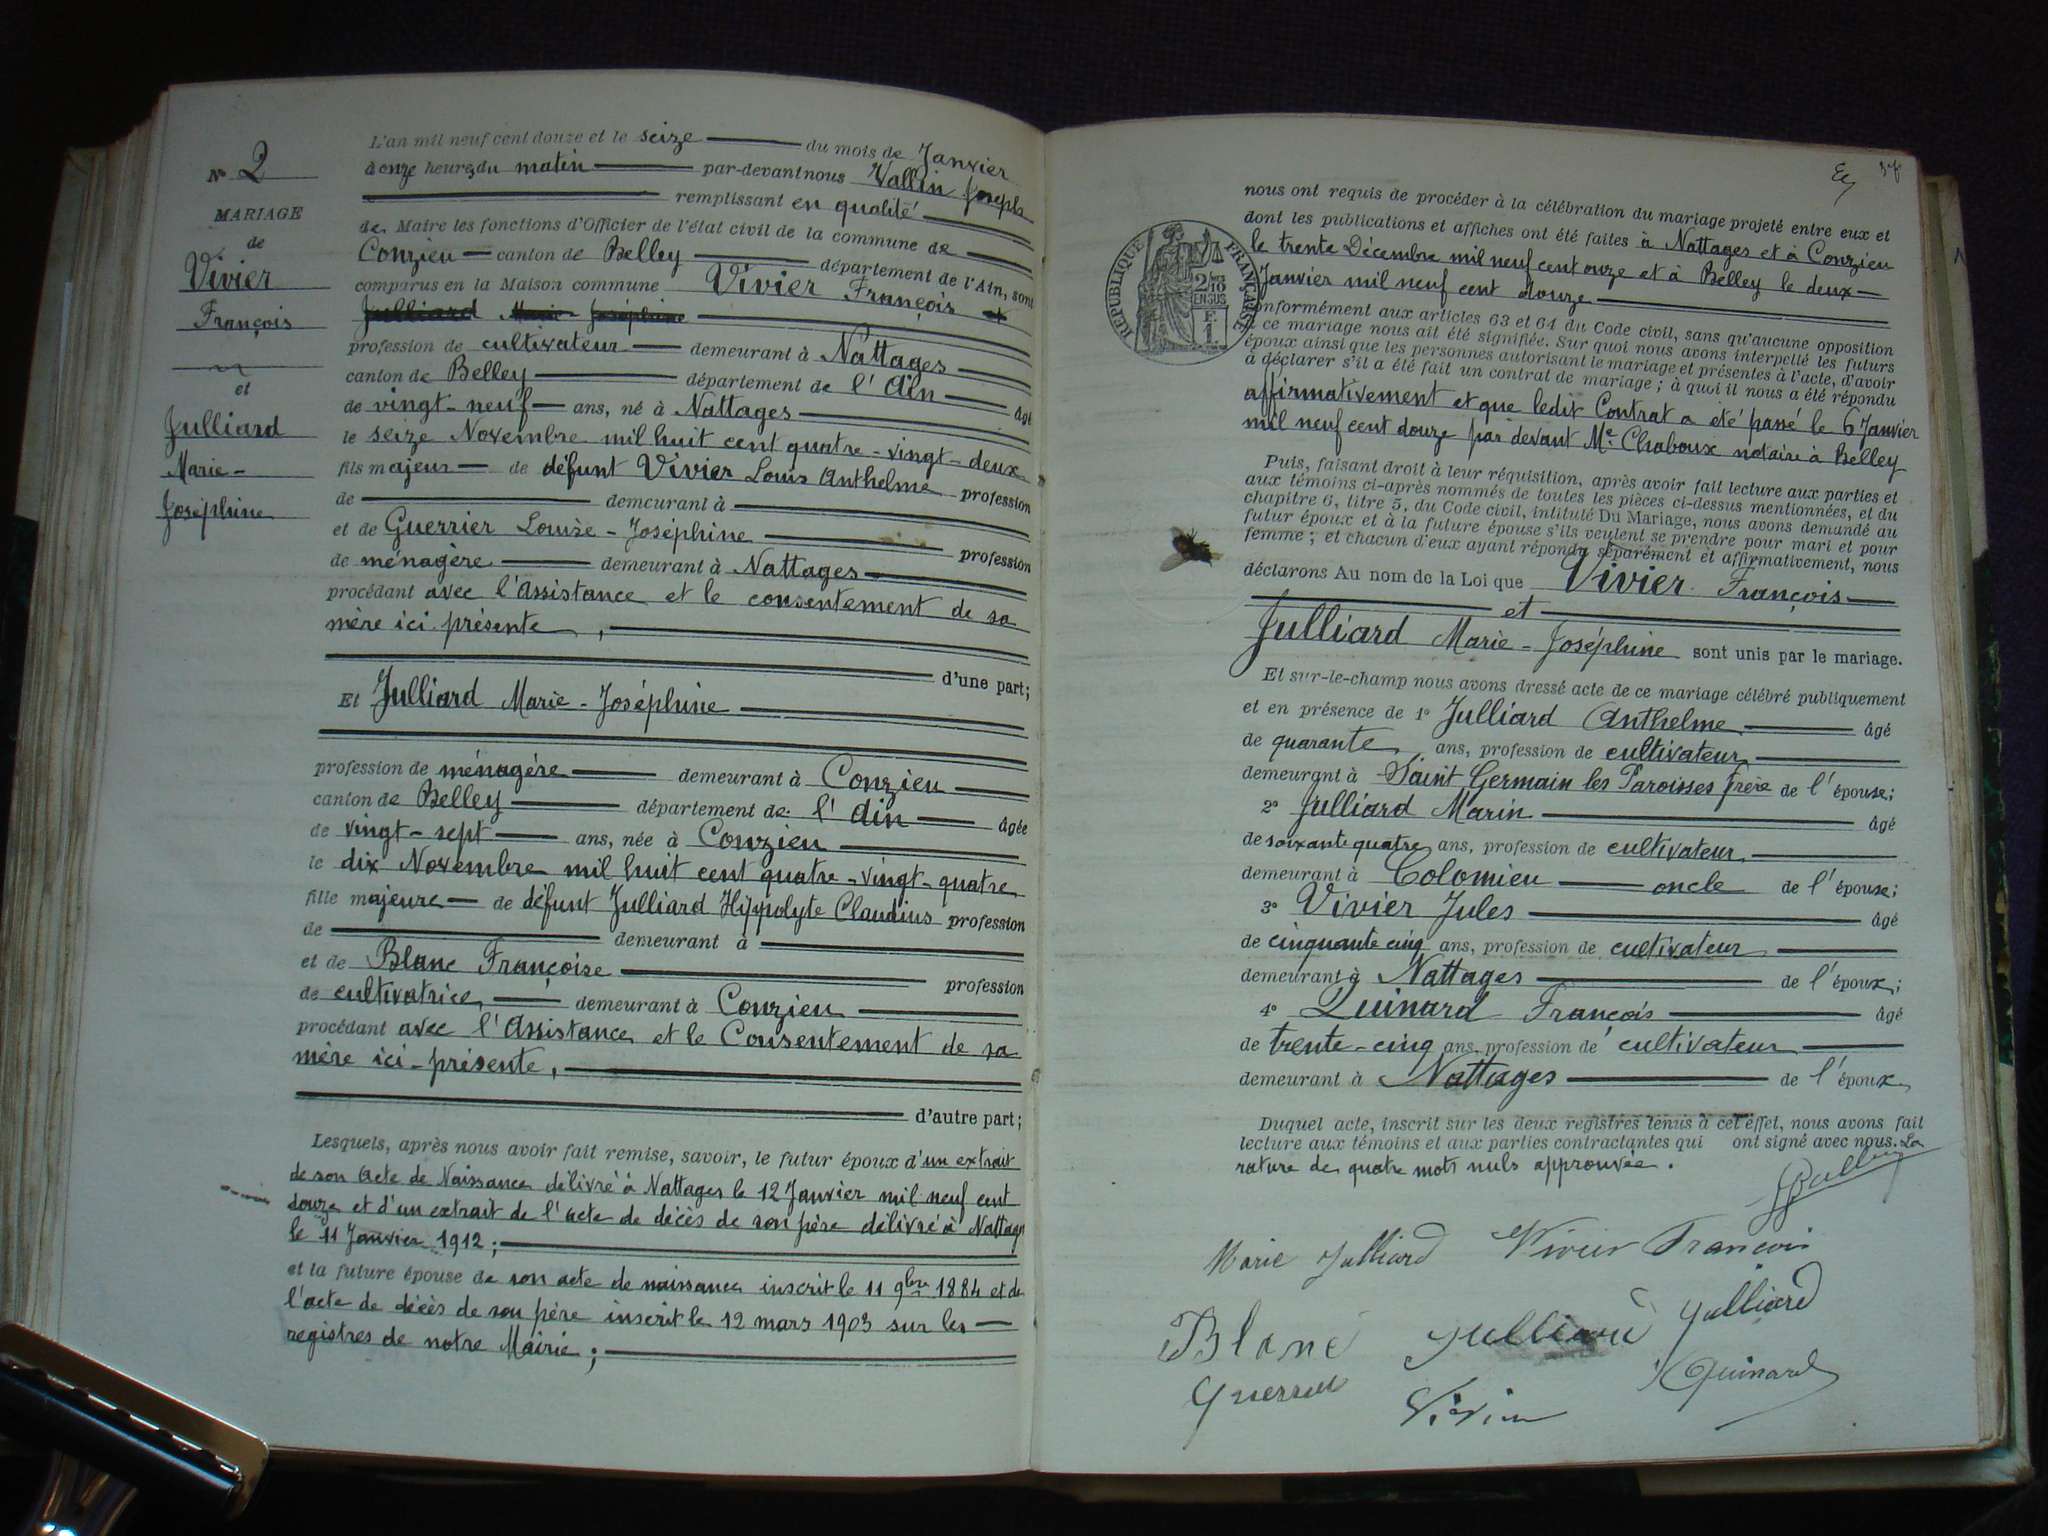 N° 2
MARIAGE
de
Vivier
François
et
Julliard
Marie-
Joséphine
L'an mil neuf cent douze et le seize du mois de Janvier
à onze heures du matin par-devant nous Vallin Joseph
remplissant en qualité
de Maire les fonctions d'Officier de l'état civil de la commune de
Conzieu canton de Belley département de l'Ain, sont
comparus en la Maison commune Vivier François
Julliard Marie Joséphine
profession de cultivateur demeurant à Nattages
canton de Belley département de l'Ain âgé
de vingt-neuf ans, né à Nattages
le seize Novembre mil huit cent quatre-vingt-deux
fils majeur de défunt Vivier Louis Anthelme profession
de demeurant à
et de Guerrier Louise-Joséphine profession
de ménagère demeurant à Nattages
procédant avec l'Assistance et le consentement de sa
mère ici présente,
d'une part;
Et Julliard Marie-Joséphine
profession de ménagère demeurant à Conzieu
canton de Belley département de l'Ain âgée
de vingt-sept ans, née à Conzieu
le dix Novembre mil huit cent quatre-vingt-quatre
fille majeure de défunt Julliard Hippolyte Claudius profession
de demeurant à
et de Blanc Françoise profession
de cultivatrice demeurant à Conzieu
procédant avec l'Assistance et le Consentement de sa
mère ici-présente,
d'autre part;
Lesquels, après nous avoir fait remise, savoir, le futur époux d'un extrait
de son Acte de Naissance délivré à Nattages le 12 Janvier mil neuf cent
douze et d'un extrait de l'acte de décès de son père délivré à Nattages
le 11 Janvier 1912;
et la future épouse de son acte de naissance inscrit le 11 9bre 1884 et de
l'acte de décès de son père inscrit le 12 mars 1903 sur les
registres de notre Mairie;
nous ont requis de procéder à la célébration du mariage projeté entre eux et
dont les publications et affiches ont été faites à Nattages et à Conzieu
le trente Décembre mil neuf cent onze et à Belley le deux
Janvier mil neuf cent douze
RÉPUBLIQUE FRANÇAISE
2/10 EN SUS
F.
1
conformément aux articles 63 et 64 du Code civil, sans qu'aucune opposition
à ce mariage nous ait été signifiée. Sur quoi nous avons interpellé les futurs
époux ainsi que les personnes autorisant le mariage et présentes à l'acte, d'avoir
à déclarer s'il a été fait un contrat de mariage; à quoi il nous a été répondu
affirmativement et que ledit Contrat a été passé le 6 Janvier
mil neuf cent douze par devant Me Chaboux notaire à Belley
Puis, faisant droit à leur réquisition, après avoir fait lecture aux parties et
aux témoins ci-après nommés de toutes les pièces ci-dessus mentionnées, et du
chapitre 6, titre 5, du Code civil, intitulé Du Mariage, nous avons demandé au
futur époux et à la future épouse s'ils veulent se prendre pour mari et pour
femme; et chacun d'eux ayant répondu séparément et affirmativement, nous
déclarons Au nom de la Loi que Vivier François
et
Julliard Marie-Joséphine sont unis par le mariage.
Et sur-le-champ nous avons dressé acte de ce mariage célébré publiquement
et en présence de 1° Julliard Anthelme âgé
de quarante ans, profession de cultivateur
demeurant à Saint Germain les Paroisses frère de l'épouse;
2° Julliard Marin âgé
de soixante quatre ans, profession de cultivateur
demeurant à Colomieu oncle de l'épouse;
3° Vivier Jules âgé
de cinquante cinq ans, profession de cultivateur
demeurant à Nattages de l'époux;
4° Quinard François âgé
de trente-cinq ans, profession de cultivateur
demeurant à Nattages de l'époux
Duquel acte, inscrit sur les deux registres tenus à cet effet, nous avons fait
lecture aux témoins et aux parties contractantes qui ont signé avec nous. La
rature de quatre mots nuls approuvée.
Marie Julliard Vivier François
Blanc Julliard Julliard
Quinard